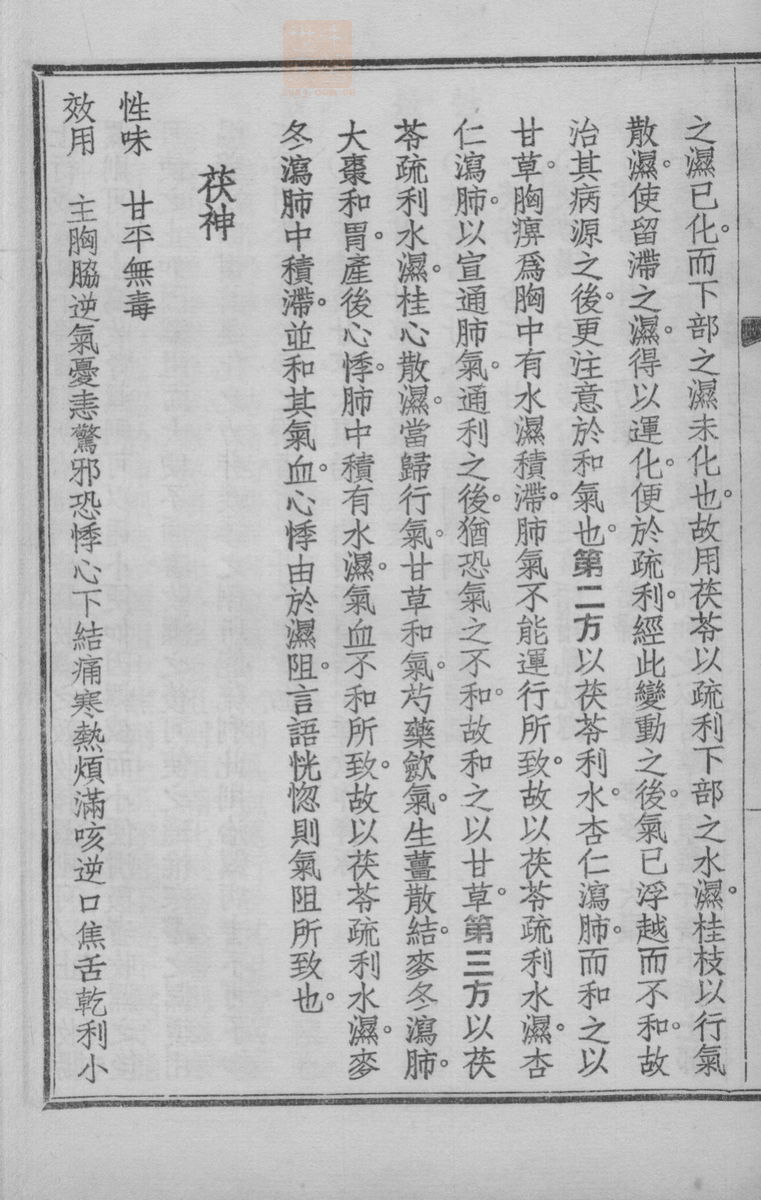 之濕已化。而下部之濕未化也。故用茯苓以疏利下部之水濕。桂枝以行氣
散濕。使留滯之濕。得以運化。便於疏利。經此變動之後。氣已浮越而不和。故
治其病源之後。更注意於和氣也。第二方以茯苓利水。杏仁瀉肺。而和之以
甘草。胸痹爲胸中有水濕積滯。肺氣不能運行所致。故以茯苓疏利水濕。杏
仁瀉肺。以宣通肺氣。通利之後。猶恐氣之不和。故和之以甘草。第三方以茯
苓疏利水濕。桂心散濕。當歸行氣。甘草和氣。芍藥歛氣。生薑散結。麥冬瀉肺。
大棗和胃。產後心悸。肺中積有水濕。氣血不和所致。故以茯苓疏利水濕。麥
冬瀉肺中積滯。並和其氣血。心悸由於濕阻。言語恍惚。則氣阻所致也。
茯神
性味　甘平無毒
效用　主胸脇逆氣憂恚驚邪恐悸心下結痛寒熱煩滿咳逆口焦舌乾利小